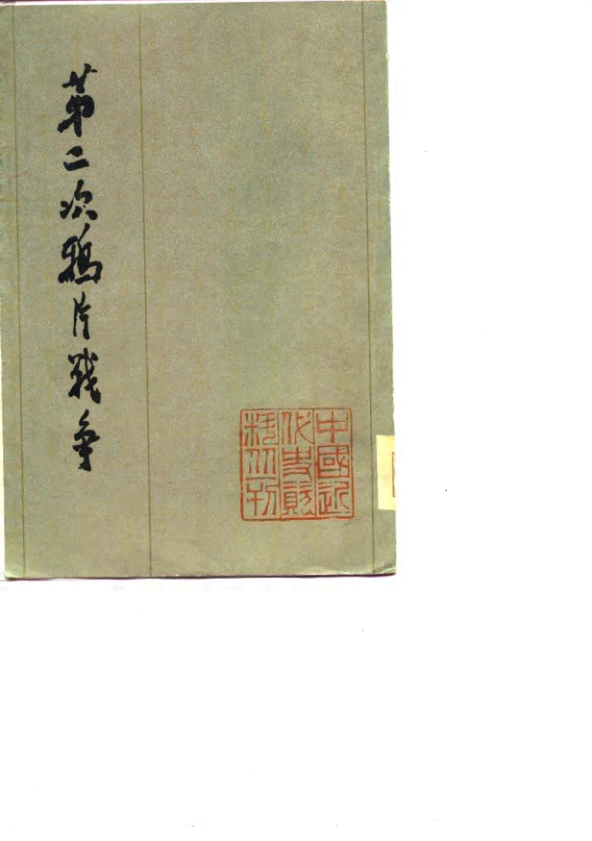 第二次鴉片戰争
中國近
代史資
料丛刊